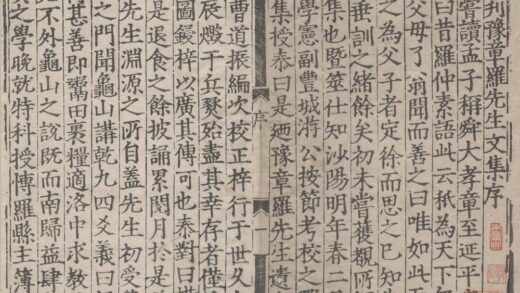 刊豫章羅先生文集序
嘗讀孟子稱舜大孝章至延平
曰昔羅仲素語此云秖為天下
父母了翁聞而善之曰唯如此
之為父子者定徐而思之已知
垂訓之緒餘矣初未嘗獲觀所
集也曁筮仕知沙陽明年春二
學憲副豐城游公按節考校之
集授泰曰是廼豫章羅先生遺
序 一
曹道振編次校正梓行于世久
辰燬于兵燹殆盡其幸存者僅
圖鋟梓以廣其傳可也泰對曰
是退食之餘披誦累閱月於是
先生淵源之所自蓋先生初受
之門聞龜山講乾九四爻義曰
甚善即鬻田裹粮適洛中求教
不外龜山之說旣而南歸益肆
之學晚就特科授博羅縣主簿